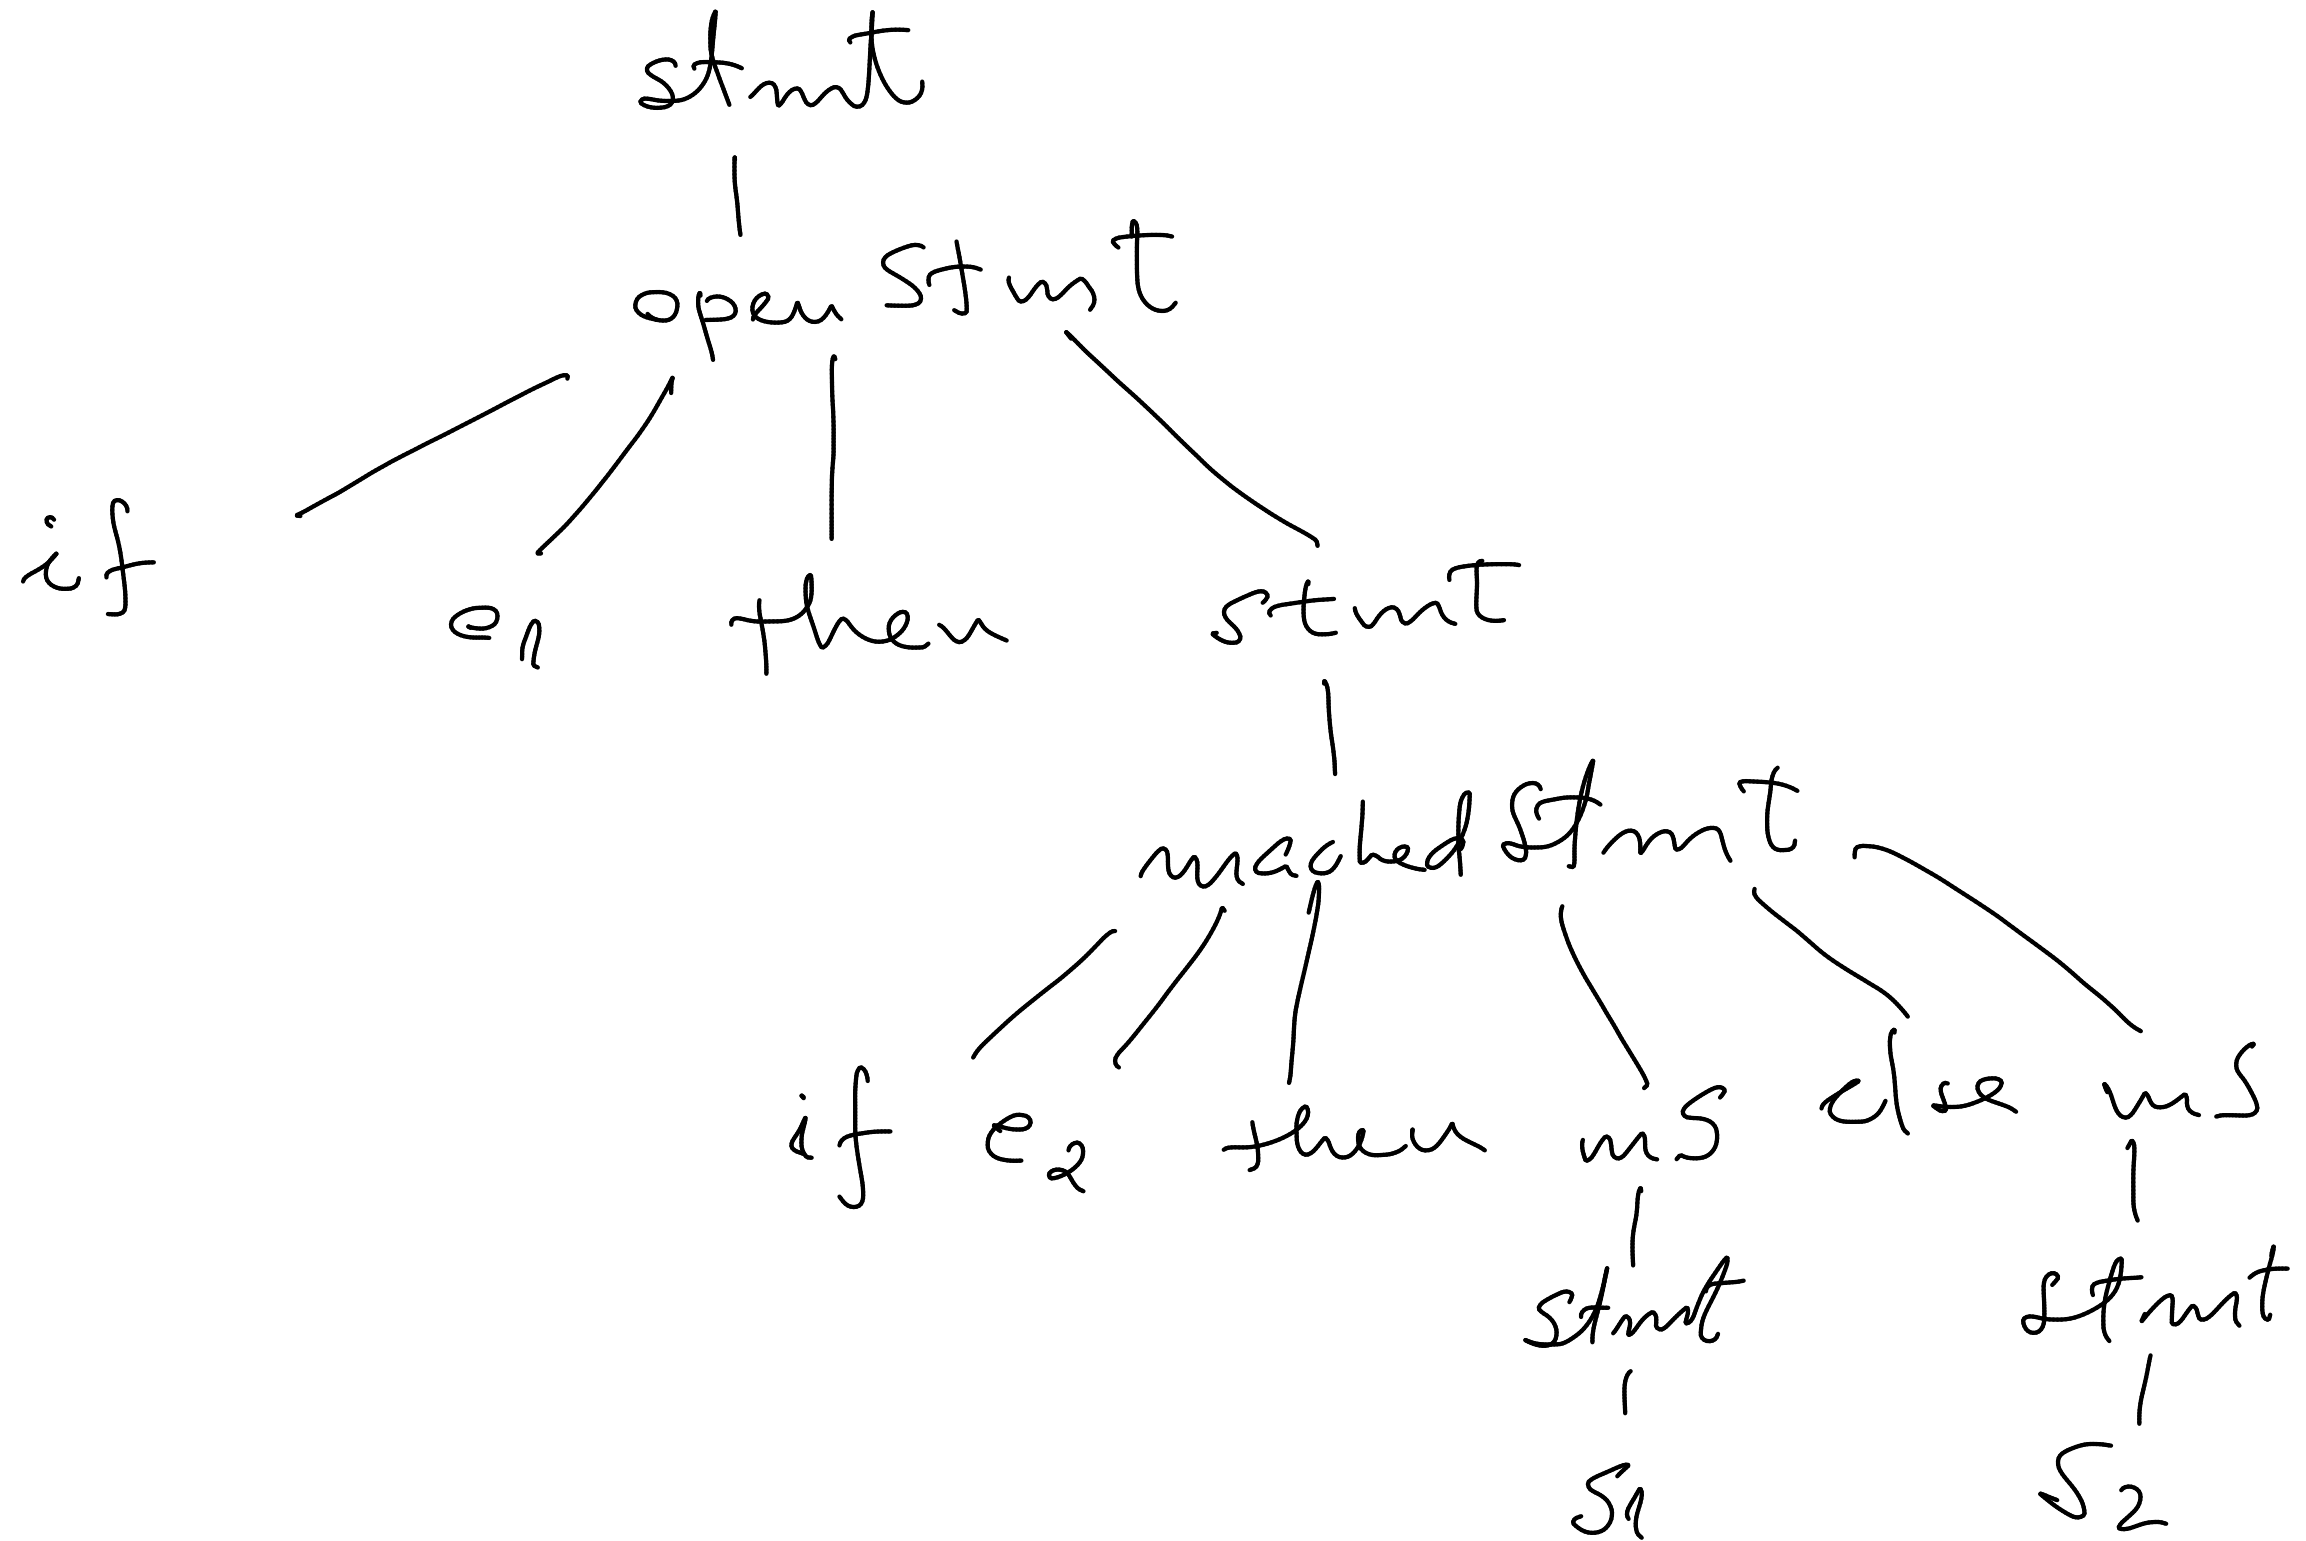 stmt
open Stmt
if e1 then stmt
mached Stmt
if e2 then ms else ms
stmt stmt
S1 S2